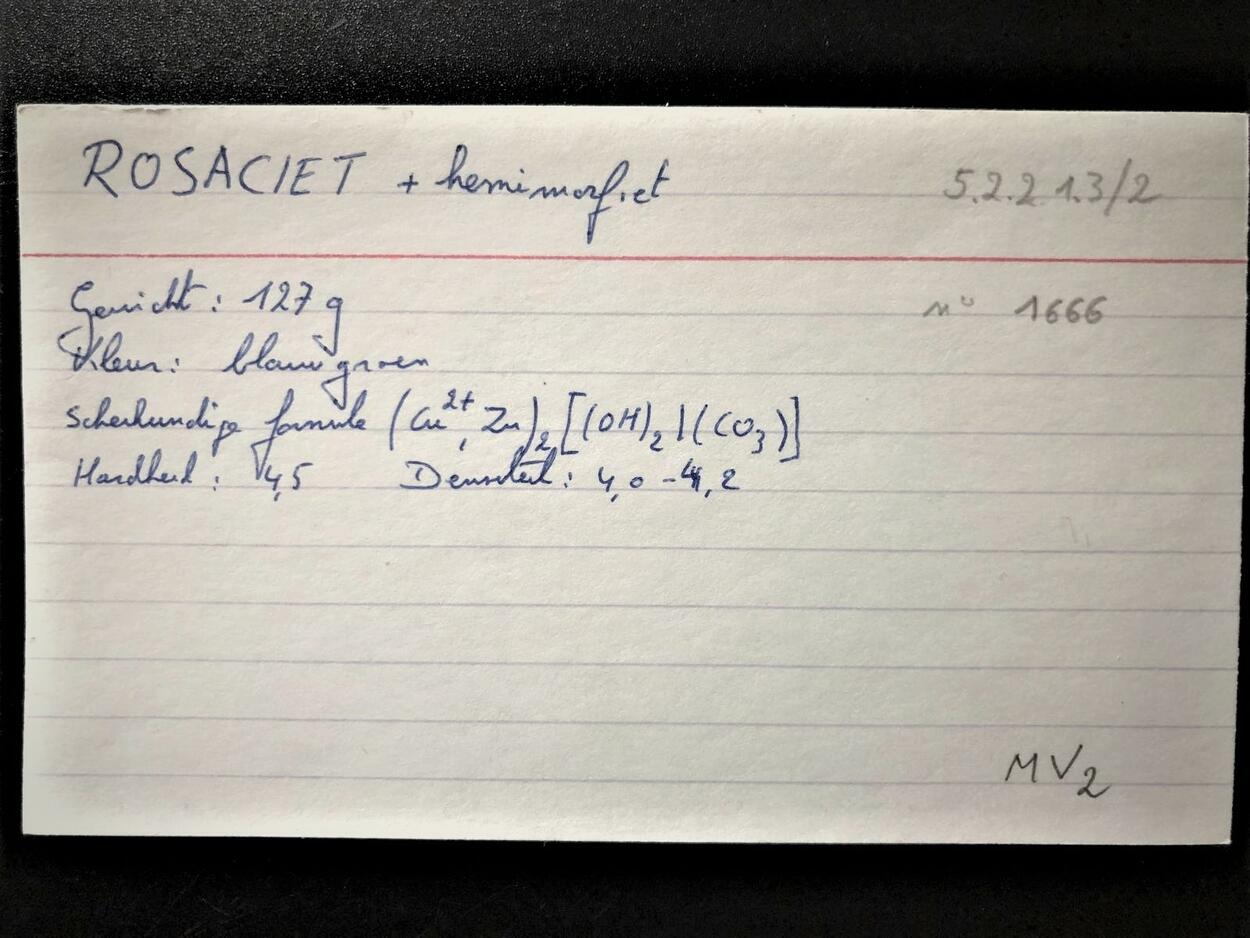 ROSACIET + hemimorfiet 5.2.2.1.3/2
Gewicht : 127 g n° 1666
Kleur : blauwgroen
Scheikundige formule (Cu²⁺, Zn)₂ [(OH)₂ | (CO₃)]
Hardheid : 4,5 Densiteit : 4,0 - 4,2
MV₂